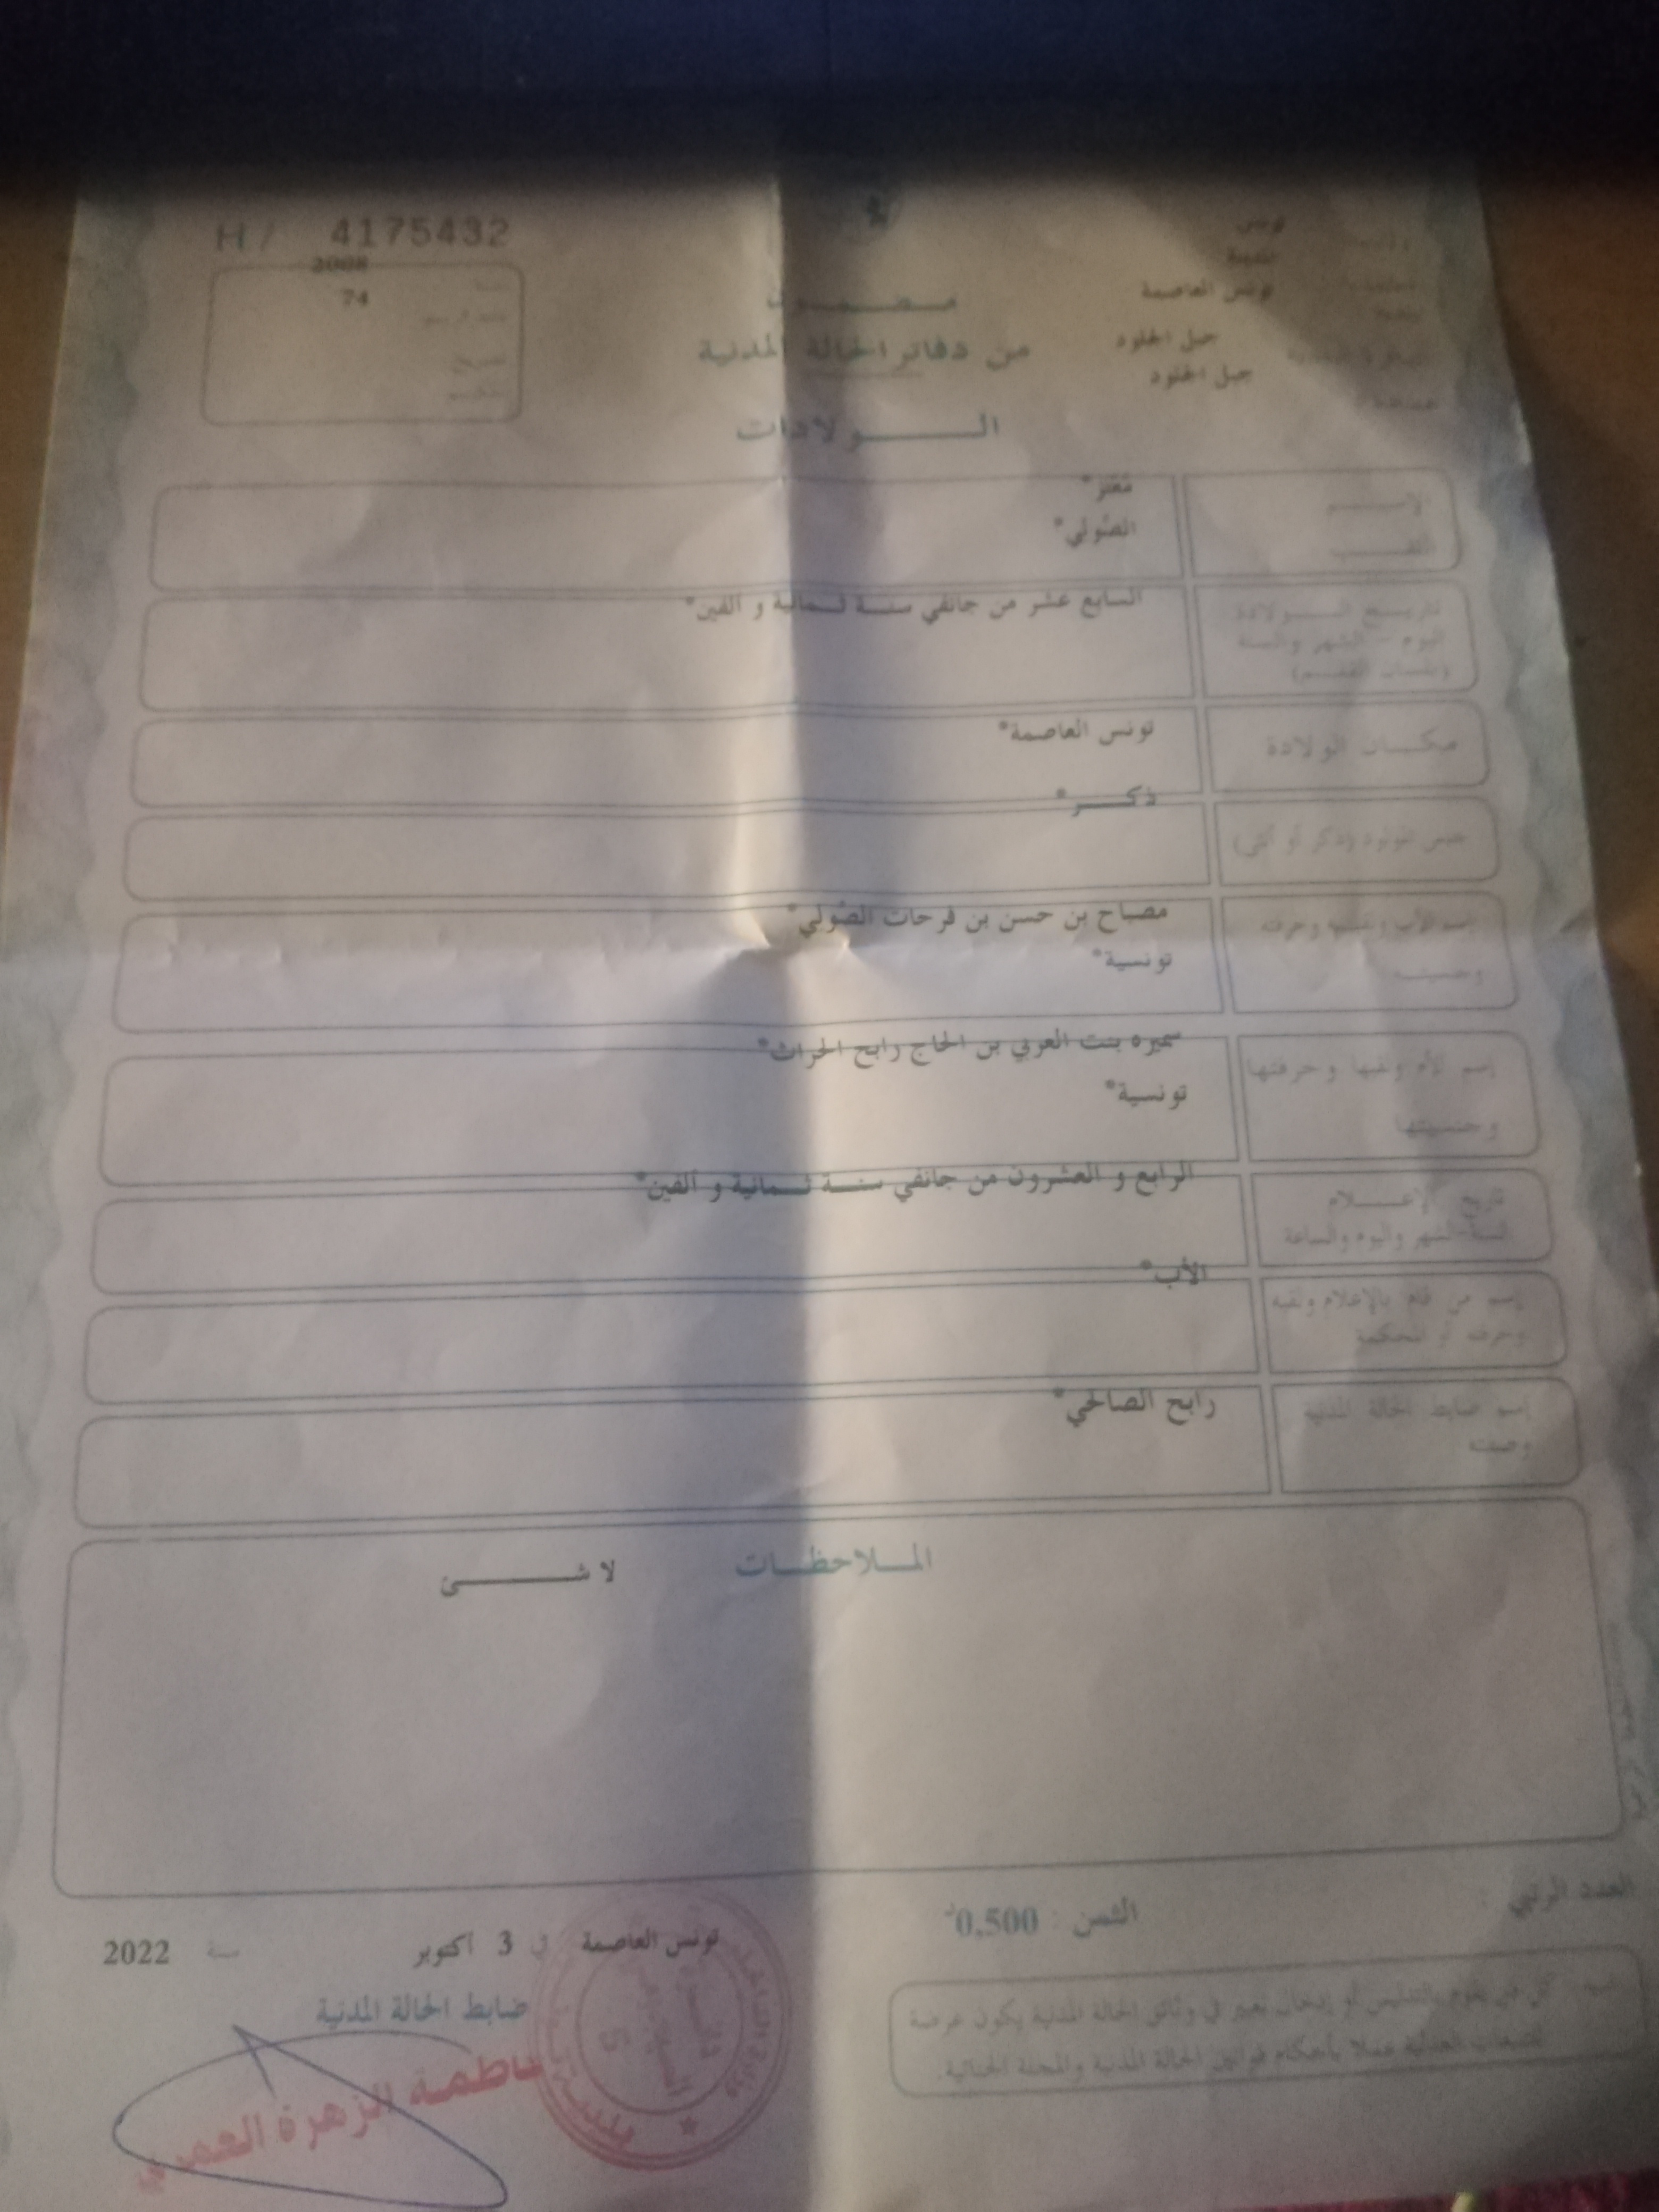 H / 4175432
2008
74
تونس
المدينة
تونس العاصمة
جبل الجلود
جبل الجلود
مضمون
من دفاتر الحالة المدنية
الولادات
الإسم
اللقب
معتز*
الصّولي*
تاريخ الولادة
اليوم - الشهر والسنة
(بلسان القلم)
السابع عشر من جانفي سنة ثمانية و ألفين*
مكان الولادة
تونس العاصمة*
جنس المولود (ذكر أو أنثى)
ذكر*
إسم الأب ولقبه وحرفته
وجنسيته
مصباح بن حسن بن فرحات الصّولي*
تونسية*
إسم الأم ولقبها وحرفتها
وجنسيتها
سميره بنت العربي بن الحاج رابح الحراث*
تونسية*
تاريخ الإعلام
السنة-الشهر واليوم والساعة
الرابع و العشرون من جانفي سنة ثمانية و ألفين*
إسم من قام بالإعلام ولقبه
وحرفته أو المحكمة
الأب*
إسم ضابط الحالة المدنية
وصفته
رابح الصالحي*
الملاحظات
لا شئ
العدد الرتبي :
الثمن : 0,500د
تونس العاصمة في 3 أكتوبر سنة 2022
ضابط الحالة المدنية
فاطمة الزهرة العمري
كل من يقوم بالتدليس أو إدخال تغيير في وثائق الحالة المدنية يكون عرضة
للتتبعات العدلية عملا بأحكام قوانين الحالة المدنية والمجلة الجنائية.